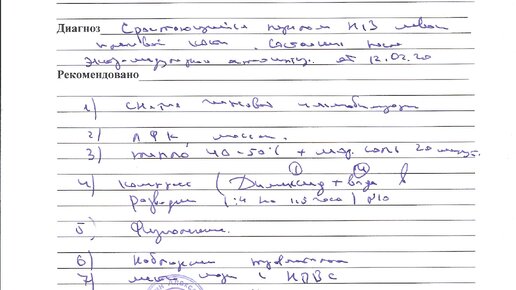 Диагноз Срастающийся перелом н/3 левой
лучевой кости. Состояние после
от 12.02.20
Рекомендовано
1) снятие гипсовой иммобилизации
2) ЛФК, массаж.
3) тепло 40-50°C + мор. соль 20 минут.
4) Компресс (Димексид + вода в
разведении 1:4 на 1,5 часа) №10
5) Физиолечение.
6) Наблюдение травматолога
7) мази с НПВС